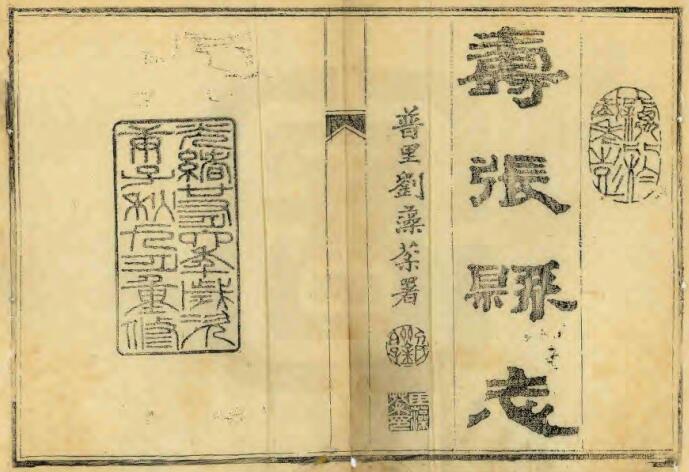 壽張縣志
普里劉藻棻署
光緒廿有六年歲次
庚子秋九月重修